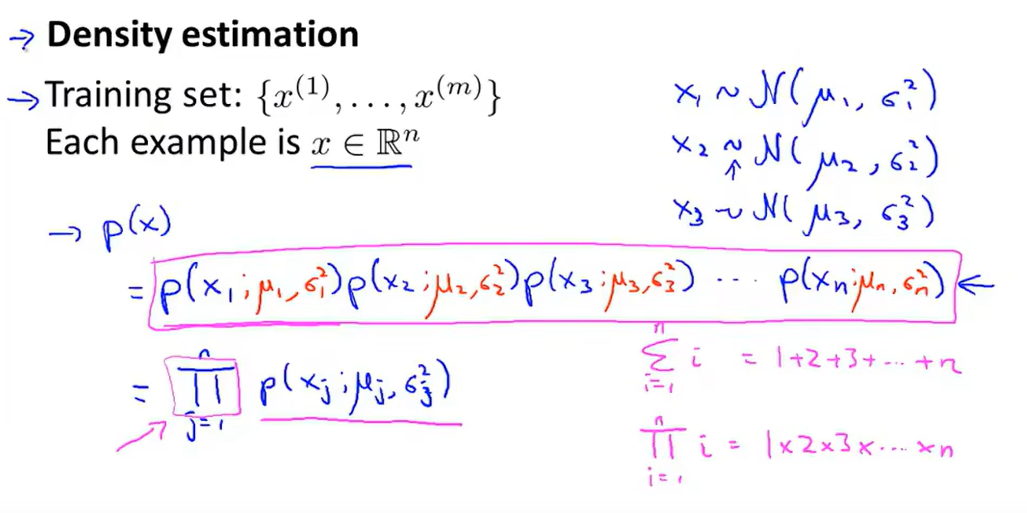 → Density estimation
→ Training set: {x⁽¹⁾, …, x⁽ᵐ⁾}
Each example is x ∈ ℝⁿ
x₁ ~ N(μ₁, σ₁²)
x₂ ~ N(μ₂, σ₂²)
↑
x₃ ~ N(μ₃, σ₃²)
→ p(x)
= p(x₁; μ₁, σ₁²) p(x₂; μ₂, σ₂²) p(x₃; μ₃, σ₃²) ⋯ p(xₙ; μₙ, σₙ²) ←
= ∏ⱼ₌₁ⁿ p(xⱼ; μⱼ, σⱼ²)
∑ᵢ₌₁ⁿ i = 1+2+3+⋯+n
∏ᵢ₌₁ⁿ i = 1×2×3×⋯×n